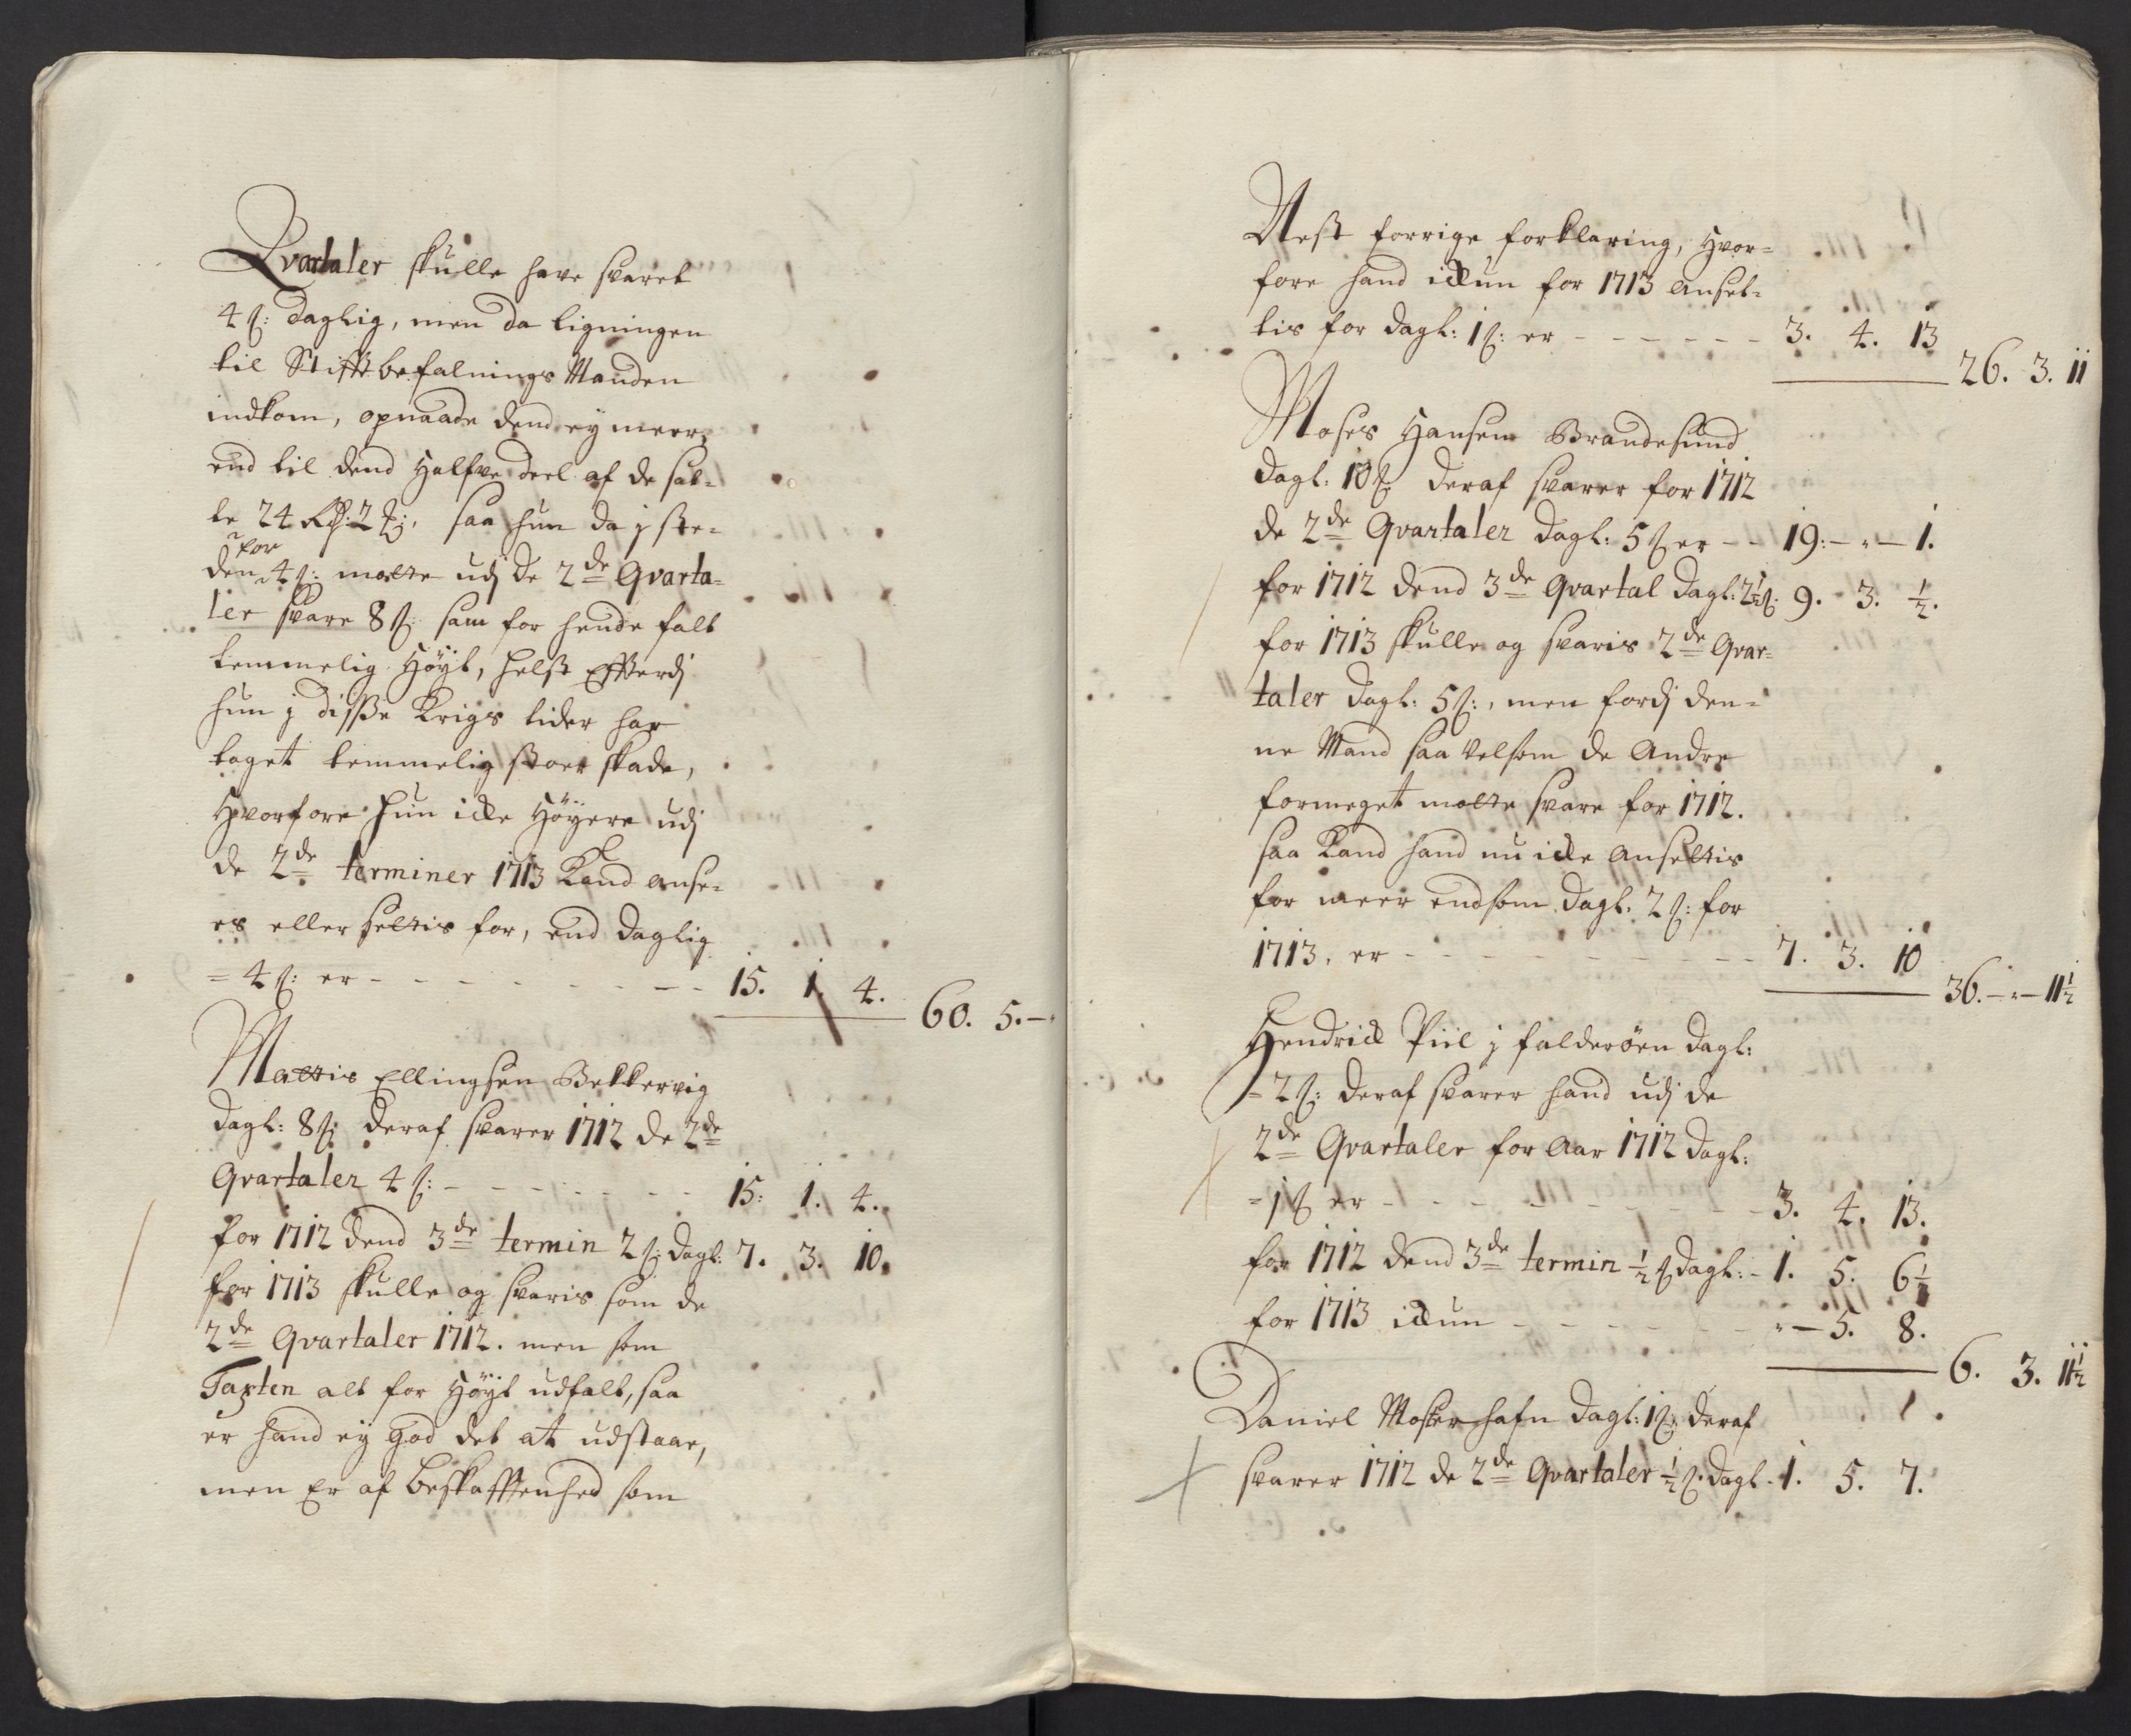 Qvartaler skulle have svaret
4 ß: daglig, men da ligningen
til Stifftbefalnings Manden
indkom, opnaade dend ey meer,
end til dend Halfve deel af de sat-
te 24 Rdr: 2 ß:, saa hun da j ste-
den for 4 ß: motte udj de 2de Qvarta-
ler svare 8 ß: som for hende falt
temmelig Høyt, helst Efterdj
hun j disse Krigs tider har
taget temmelig stoer skade,
Hvorfore hun icke Høyere udj
de 2de terminer 1713 Kand anse-
es eller settis for, end daglig
= 4 ß: er - - - - - - - - 15. 1. 4.
60. 5. -
Mattis Ellingsen Bekkervig
dagl: 8 ß: deraf svarer 1712 de 2de
Qvartaler 4 ß: - - - - - - - 15: 1. 4.
for 1712 dend 3de termin 2 ß: dagl: 7. 3. 10.
for 1713 skulle og svaris som de
2de Qvartaler 1712. men som
Taxten alt for Høyt udfalt, saa
er hand ey god det at udstaae,
men Er af beskaffenhed som
Nest forrige forklaring, Hvor=
fore hand ickun for 1713 anset-
tis for dagl: 1 ß: er - - - - - - 3. 4. 13
26. 3. 11
Moses Hansen Brandesund
dagl: 10 ß deraf svarer for 1712
de 2de Qvartaler dagl: 5 ß er - - 19: - " - 1.
for 1712 dend 3de Qvartal dagl: 2½ ß: 9. 3. ½.
for 1713 skulle og svaris 2de Qvar=
taler dagl: 5 ß:, men fordj den=
ne Mand saa velsom de Andre
formeget motte svare for 1712.
saa Kand hand nu icke ansettis
for meer endsom dagl. 2 ß: for
1713. er - - - - - - - - - 7. 3. 10
36. - " - 11½
Hendrick Piil j falderøen dagl:
= 2 ß: deraf svarer hand udj de
2de Qvartaler for Aar 1712 dagl:
= 1 ß er - - - - - - - - - 3. 4. 13.
for 1712 dend 3de termin ½ ß dagl: - 1. 5. 6½
for 1713 ickun - - - - - - " - 5. 8.
6. 3. 11½
Daniel Mosterhafn dagl: 1 ß: deraf
svarer 1712 de 2de Qvartaler ½ ß: dagl - 1. 5. 7.